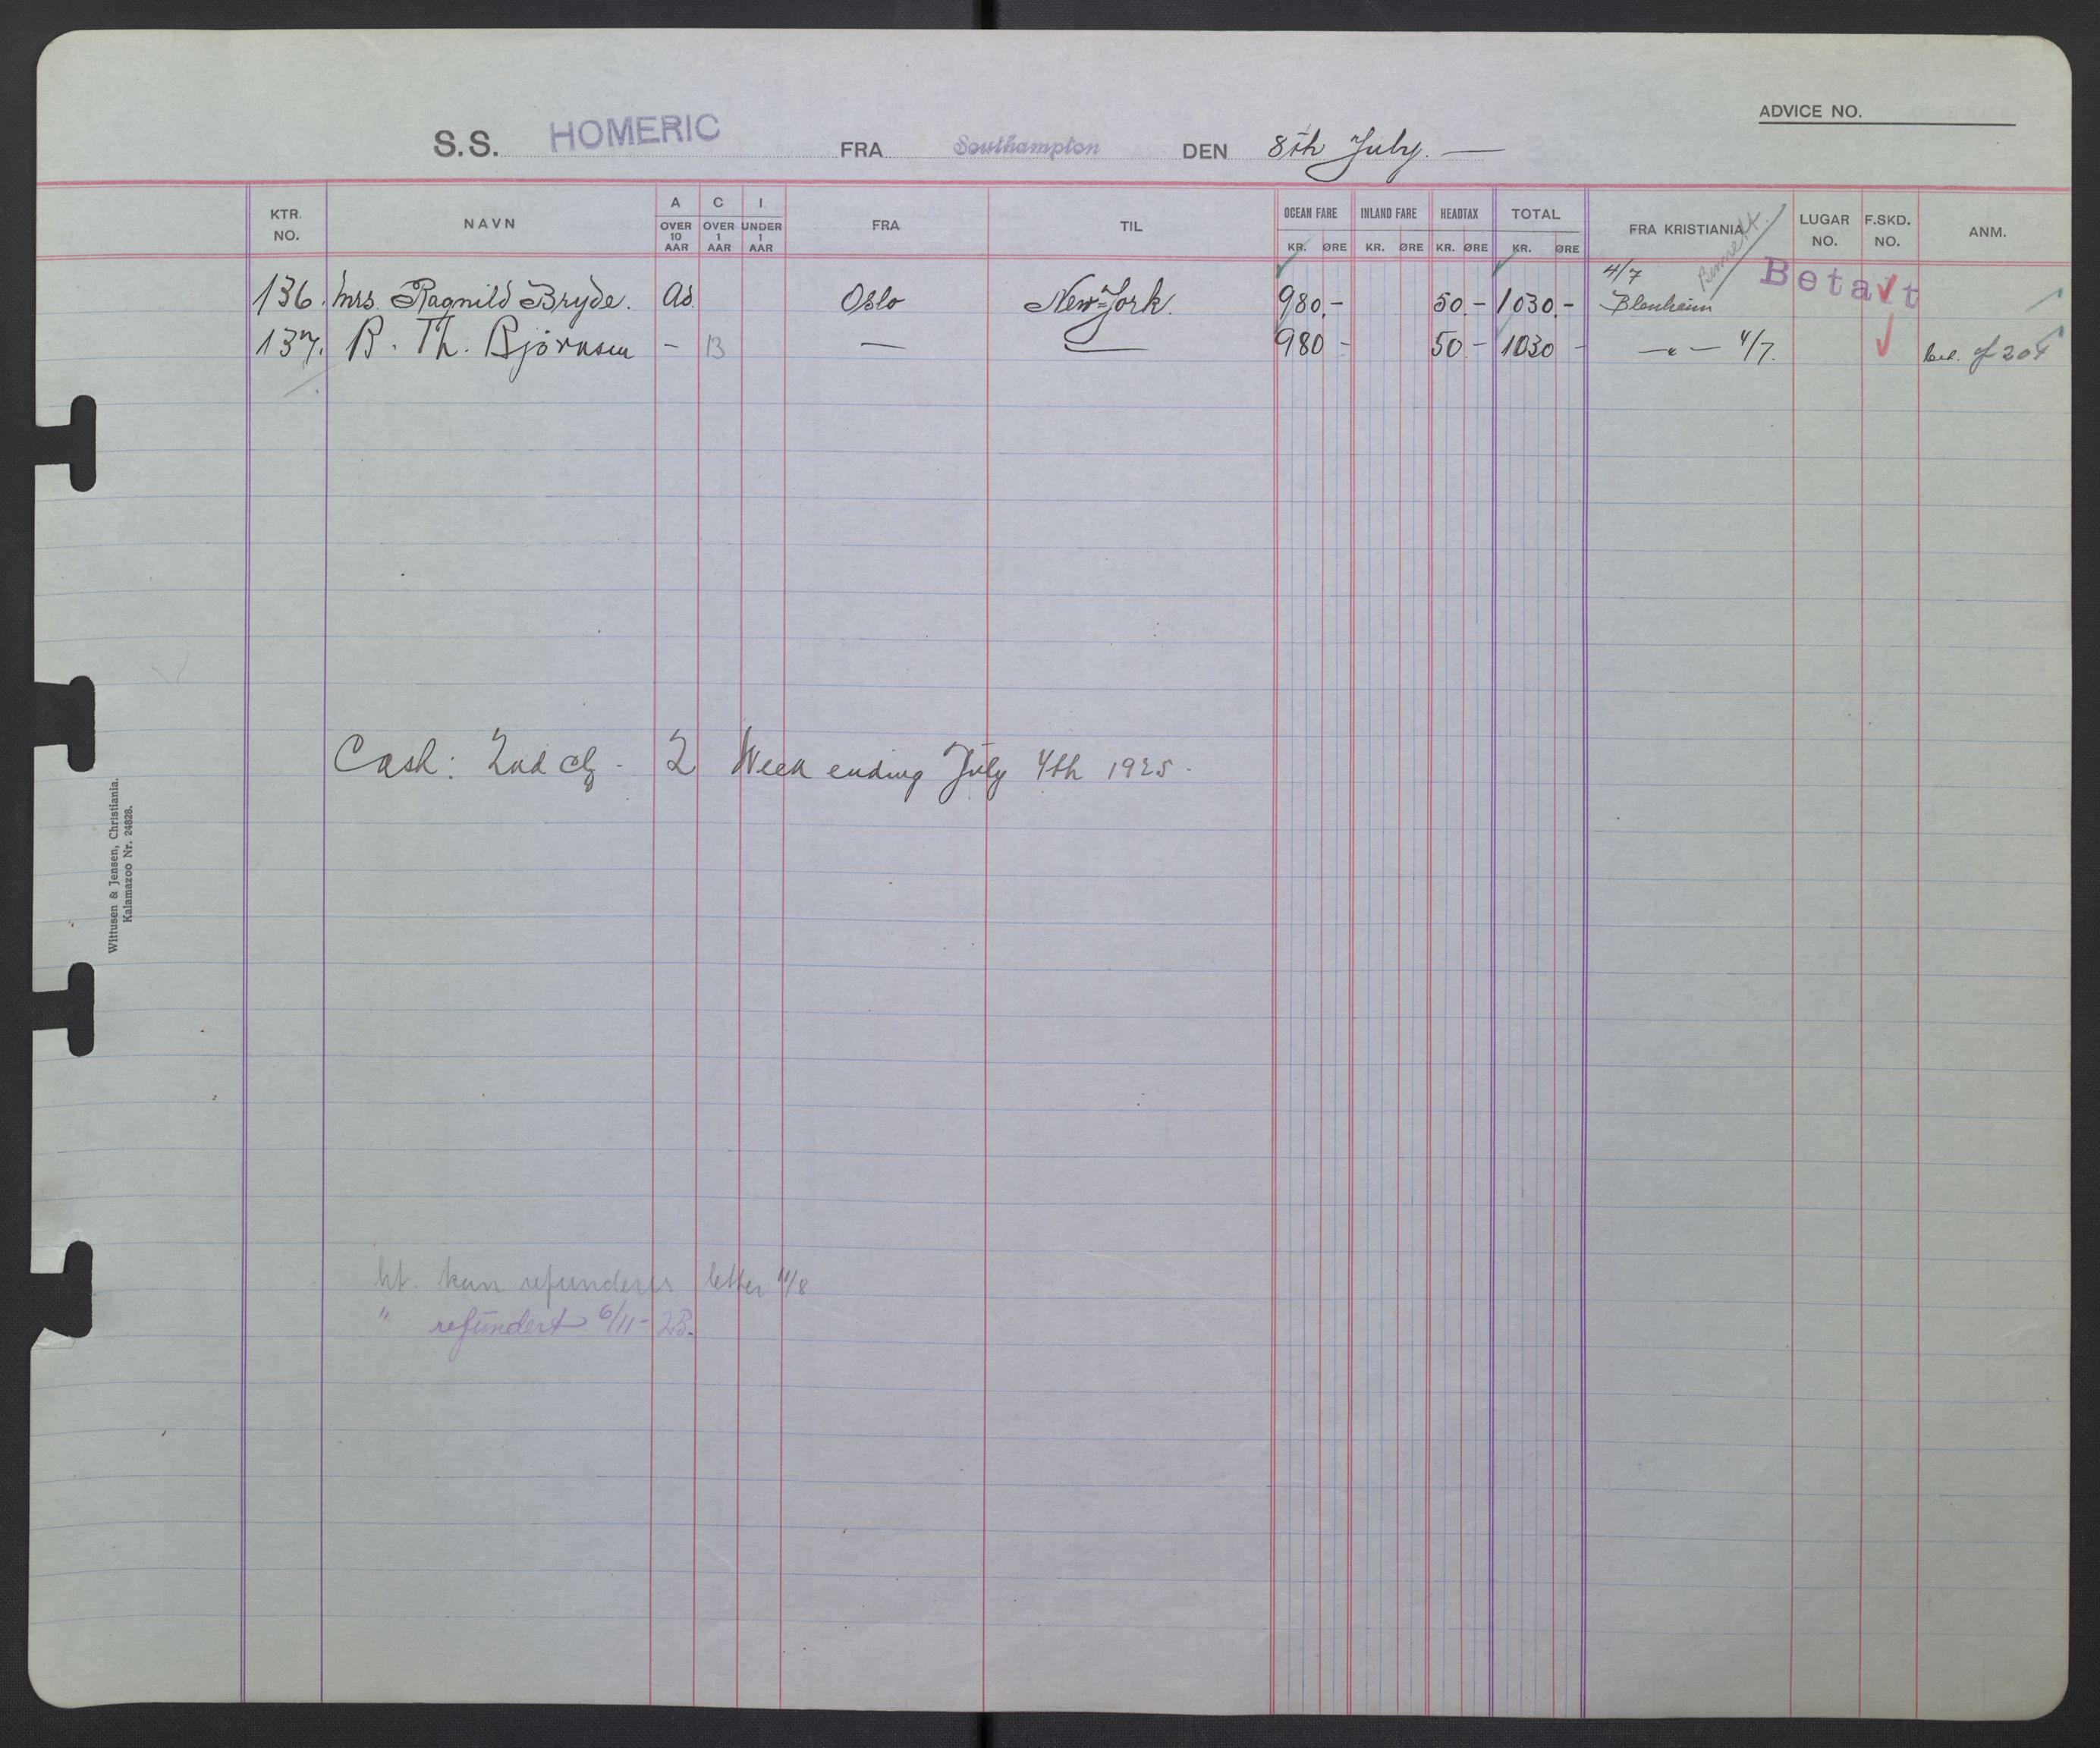 ADVICE NO.
S.S. HOMERIC FRA Southampton DEN 8th July. —
KTR. NO. NAVN A OVER 10 AAR C OVER 1 AAR I UNDER 1 AAR FRA TIL OCEAN FARE KR. ØRE INLAND FARE KR. ØRE HEADTAX KR. ØRE TOTAL KR. ØRE FRA KRISTIANIA LUGAR NO. F.SKD. NO. ANM.
Bennett.
4/7 Betalt
136. Mrs. Ragnild Bryde. Ad. Oslo New=York. 980,- 50.- 1030.- Blenheim
137. B. Th. Björnsen - 13 — — 980 - 50 - 1030 - —"— 4/7. of 204
Cash: 2nd cl. - 2 Week ending July 4th 1925.
ht. kan refunderes letter 11/8
" refundert 6/11-28.
Wittusen & Jensen, Christiania.
Kalamazoo Nr. 24828.